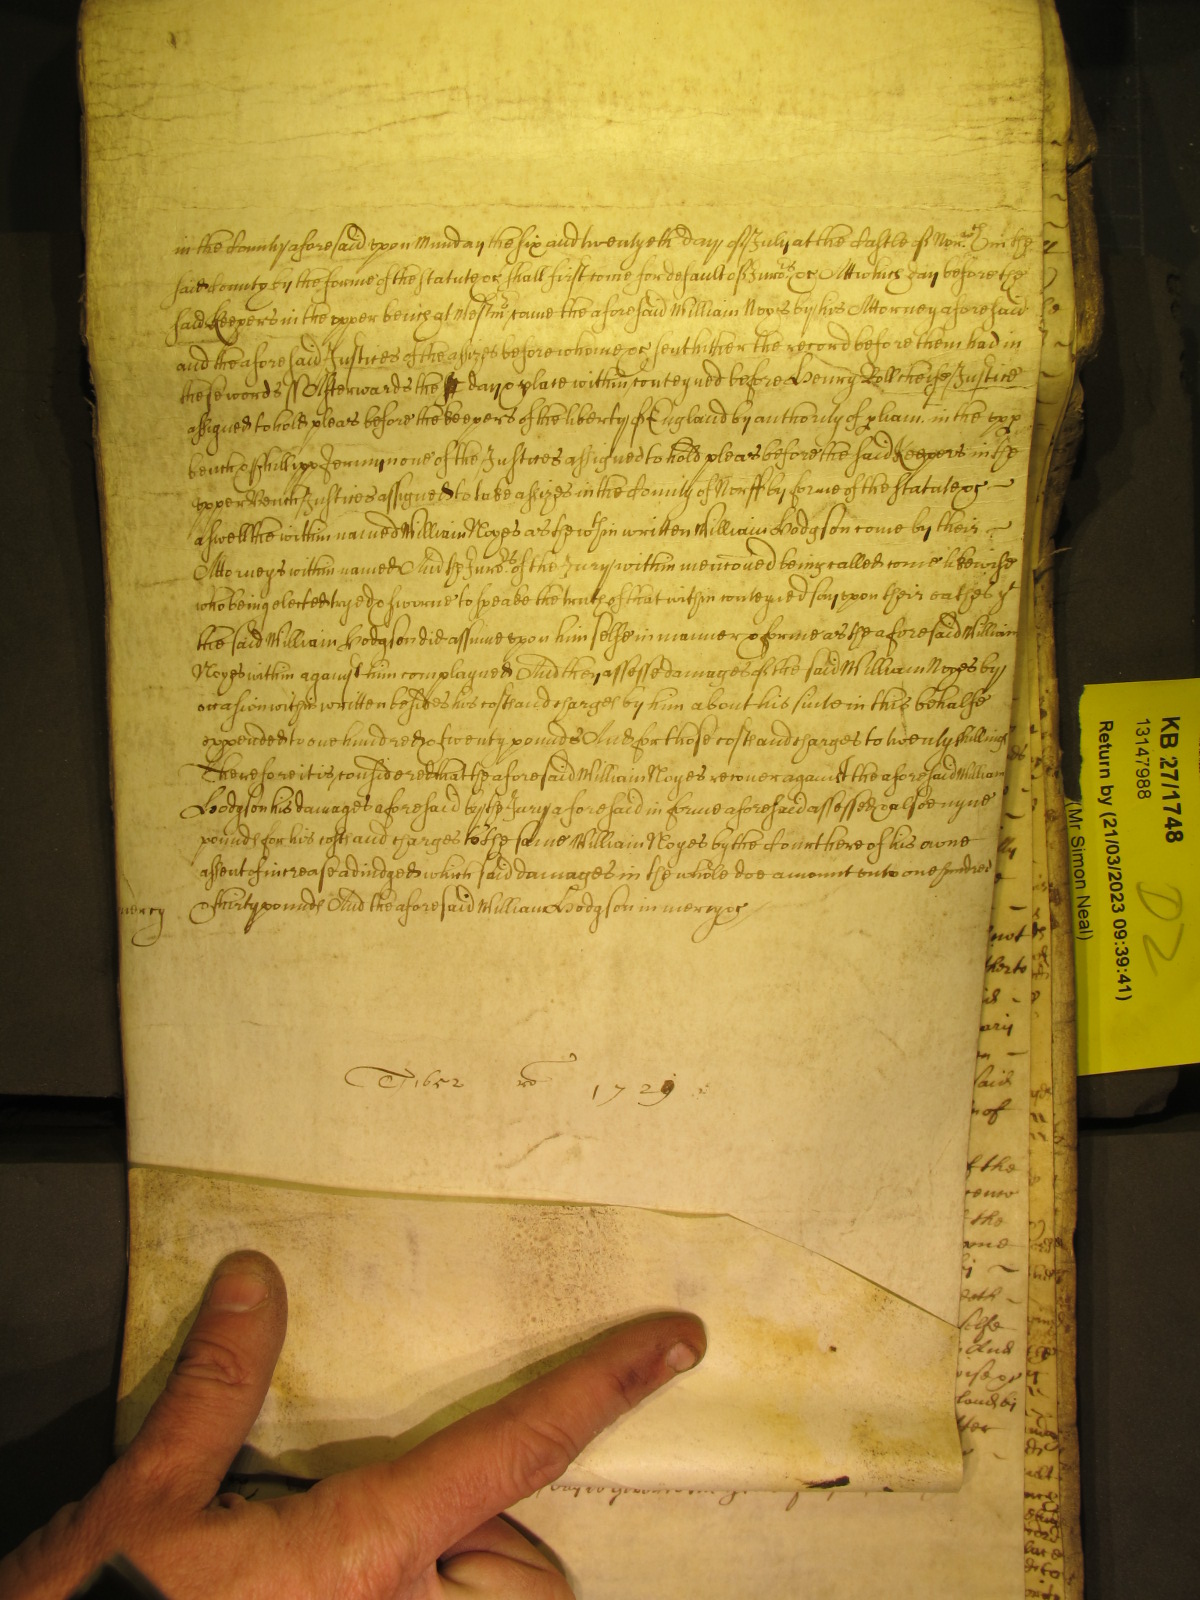 in the County aforesaid upon Munday the six and twentyeth day of July at the Castle of Norwch in the
said County by the forme of the statute &c shall first come for default of Juro:rs &c Att which day before the
said Keepers in the upper bench at Westmr came the aforesaid William Noyes by his Attorney aforesaid
and the aforesaid Justices of the assizes before whome &c sent hither the record before them had in
these words ss Afterwards the day & place within conteyned before Henry Roll cheife Justice
assigned to hold pleas before the keepers of the liberty of England by authority of pliam. in the upp
bench & Phillipp Jermyn one of the Justices assigned to hold pleas before the said Keepers in the
upper bench Justices assigned to take assizes in the County of Norff by forme of the statute &c
aswell the within named William Noyes as the wthin written William Hodgson come by their
Attorneys within named And the Juro:rs of the Jury within mencioned being called come likewise
who being elected tryed & sworne to speake the truth of that within conteyned say upon their oathes yt
the said William Hodgson did assume upon him selfe in manner & forme as the aforesaid William
Noyes within against him complayned And they assesse damages of the said William Noyes by
occasion within written besides his costs and charges by him about his suite in this behalfe
expended to one hundred & twenty pounds And for those costs and charges to twenty shillings
Therefore it is considered that the aforesaid William Noyes recover against the aforesaid William
Hodgson his damages aforesaid by the Jury aforesaid in forme aforesaid assessed & alsoe nyne
pounds for his costs and charges to the same William Noyes by the Court here of his owne
assent of increase adiudged which said damages in the whole doe amount unto one hundred
& thirty pounds And the aforesaid William Hodgson in mercy &c
mercy
T 1652 ro 1729
KB 27/1748
13147988
Return by (21/03/2023 09:39:41)
(Mr Simon Neal)
D2